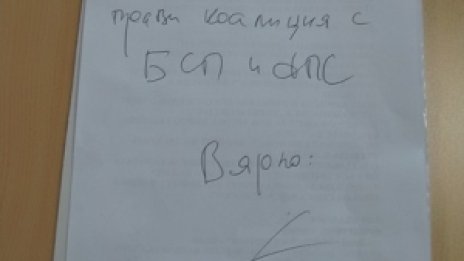 прави коалиция с
БСП и ДПС
Вярно: